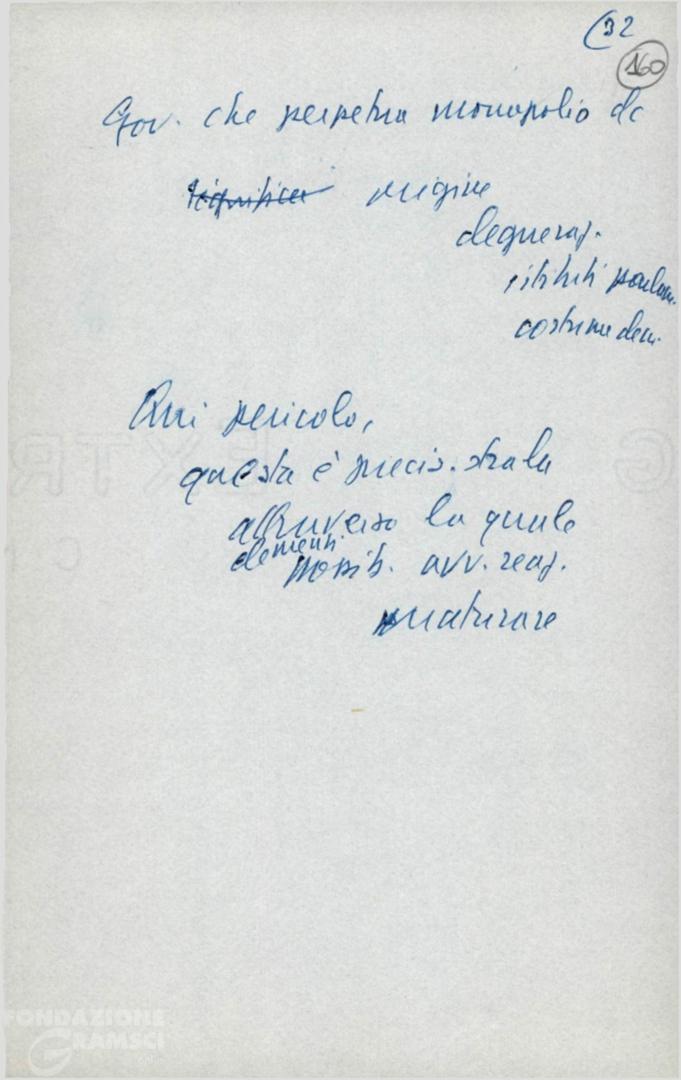 (32
160
Gov. che perpetua monopolio dc
significa origine
degneraz.
istituti parlam.
costume dem.
Qui pericolo,
questa è precis. strada
attraverso la quale
elementi
possib. avv. reaz.
maturare
EXTR
FONDAZIONE
GRAMSCI